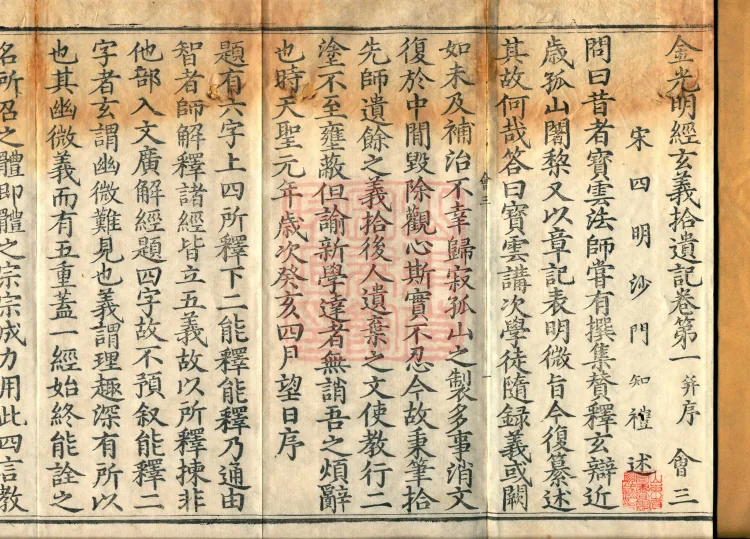 金光明經玄義拾遺記卷第一 并序 會三
宋四明沙門知禮述
問曰昔者寶雲法師嘗有撰集賛釋玄辯近
歲孤山闍棃又以章記表明微旨今復纂述
其故何哉答曰寶雲講次學徒隨録義或闕
如未及補治不幸歸寂孤山之製多事消文
會三 一
復於中間毀除觀心斯實不忍今故秉筆拾
先師遺餘之義拾後人遺棄之文使教行二
塗不至壅蔽但諭新學達者無誚吾之煩辭
也時天聖元年歲次癸亥四月望日序
題有六字上四所釋下二能釋能釋乃通由
智者師解釋諸經皆立五義故以所釋揀非
他部入文廣解經題四字故不預叙能釋二
字者玄謂幽微難見也義謂理趣深有所以
也其幽微義而有五重蓋一經始終能詮之
名所召之體即體之宗宗成力用此四言教